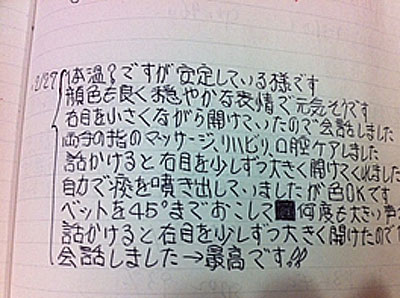 2/27 体温?ですが安定している様です
顔色も良く穏やかな表情で元気そうです
右目を小さくながら開けていたので会話しました
両手の指のマッサージ、リハビリ、口腔ケアしました
話かけると右目を少しずつ大きく開けてくれました
自力で痰を噴き出していましたが色OKです
ベットを45°までおこして 何度も大きい声
話かけると右目を少しずつ大きく開けたので
会話しました→最高です!!